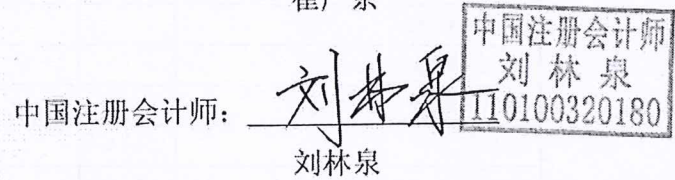 中国注册会计师
刘林泉
110100320180
中国注册会计师：刘林泉
刘林泉